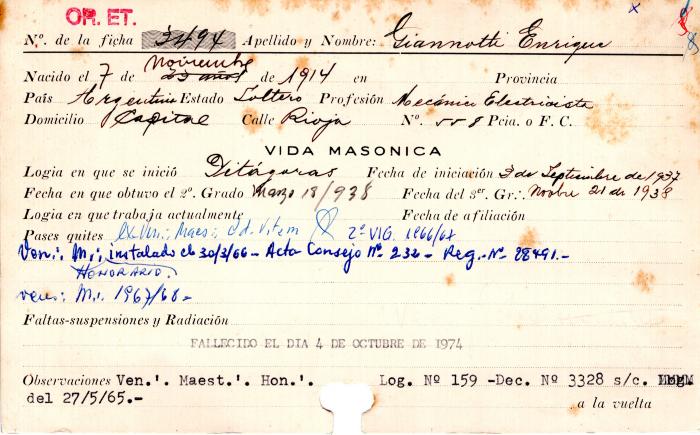 OR. ET.
Nº. de la ficha 3494 Apellido y Nombre: Giannotti Enrique
Nacido el 7 de Noviembre de 1914 en Provincia
País Argentina Estado Soltero Profesión Mecánico Electricista
Domicilio Capital Calle Rioja Nº. 558 Pcia. o F. C.
VIDA MASONICA
Logia en que se inició Pitágoras Fecha de iniciación 3 de Septiembre de 1937
Fecha en que obtuvo el 2º. Grado Marzo 18/938 Fecha del 3er. Gr.: Novbre 21 de 1938
Logia en que trabaja actualmente Fecha de afiliación
Pases quites ex Ven.: Maes.: Ad. Vitem 2º VIG. 1966/67
Ven.: M.: instalado el 30/3/66 - Acta Consejo Nº 232 - Reg. Nº 28491.-
HONORARIO.
M.: 1967/68 -
Faltas-suspensiones y Radiación
FALLECIDO EL DIA 4 DE OCTUBRE DE 1974
Observaciones Ven.'. Maest.'. Hon.'. Log. Nº 159 -Dec. Nº 3328 s/c.
del 27/5/65.-
a la vuelta